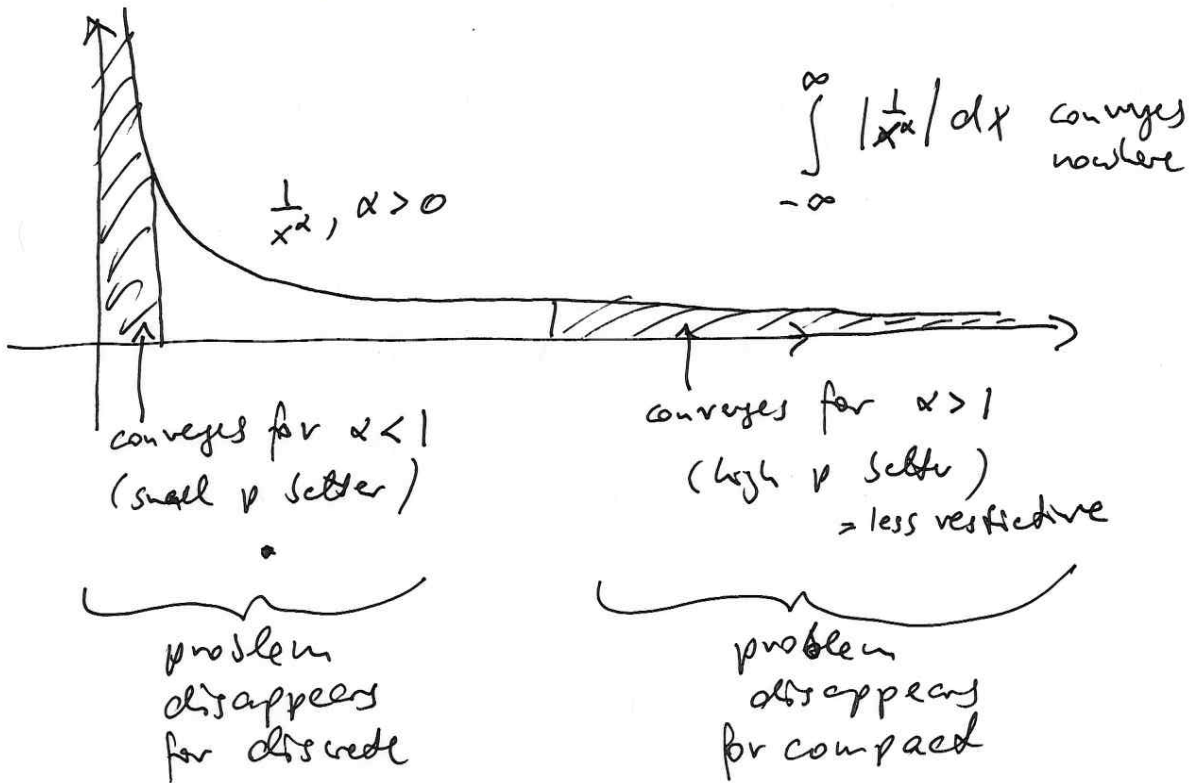 ∞
∫ |1/x^α| dx converges
-∞
nowhere
1/x^α, α > 0
converges for α < 1
(small p better)
converges for α > 1
(high p better)
= less restrictive
problem
disappears
for discrete
problem
disappears
for compact